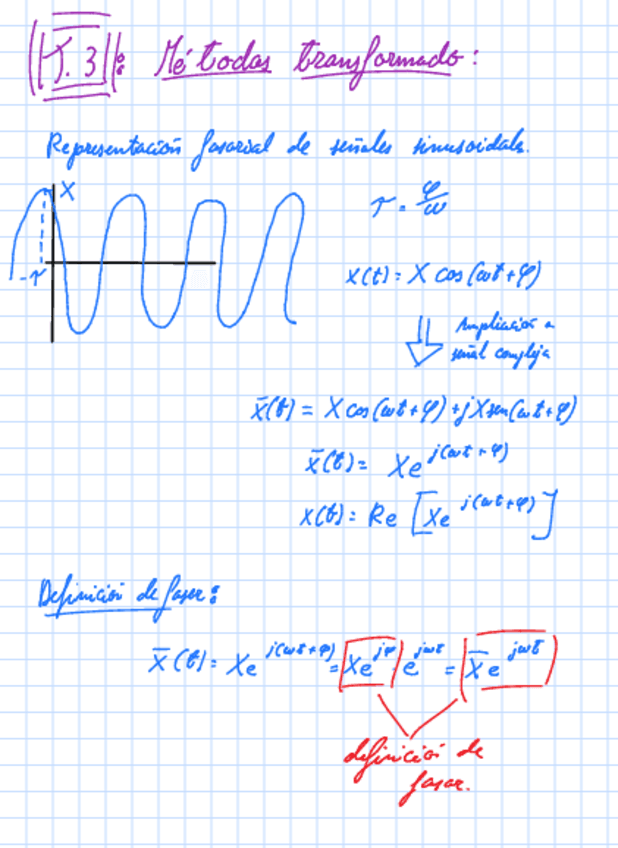 T. 3: Métodos transformado:
Representación fasorial de señales sinusoidales.
X
-τ
τ = φ/ω
x(t) = X cos(ωt+φ)
Ampliación a
señal compleja
x̄(t) = X cos(ωt+φ) + jX sen(ωt+φ)
x̄(t) = Xe^{j(ωt+φ)}
x(t) = Re [Xe^{j(ωt+φ)}]
Definición de fasor:
x̄(t) = Xe^{j(ωt+φ)} = Xe^{jφ} · e^{jωt} = X̄e^{jωt}
definición de
fasor.